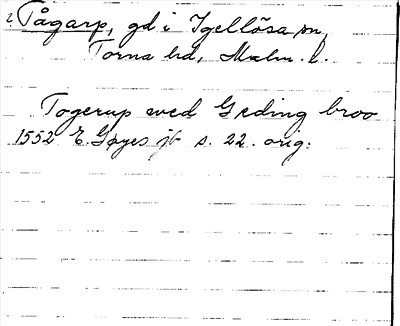 2. Tågarp, gd i Igellösa sn,
Torna hd, Malm. l.
Togerup wed Geding broo
1552 E. Gøyes jb s. 22. orig.